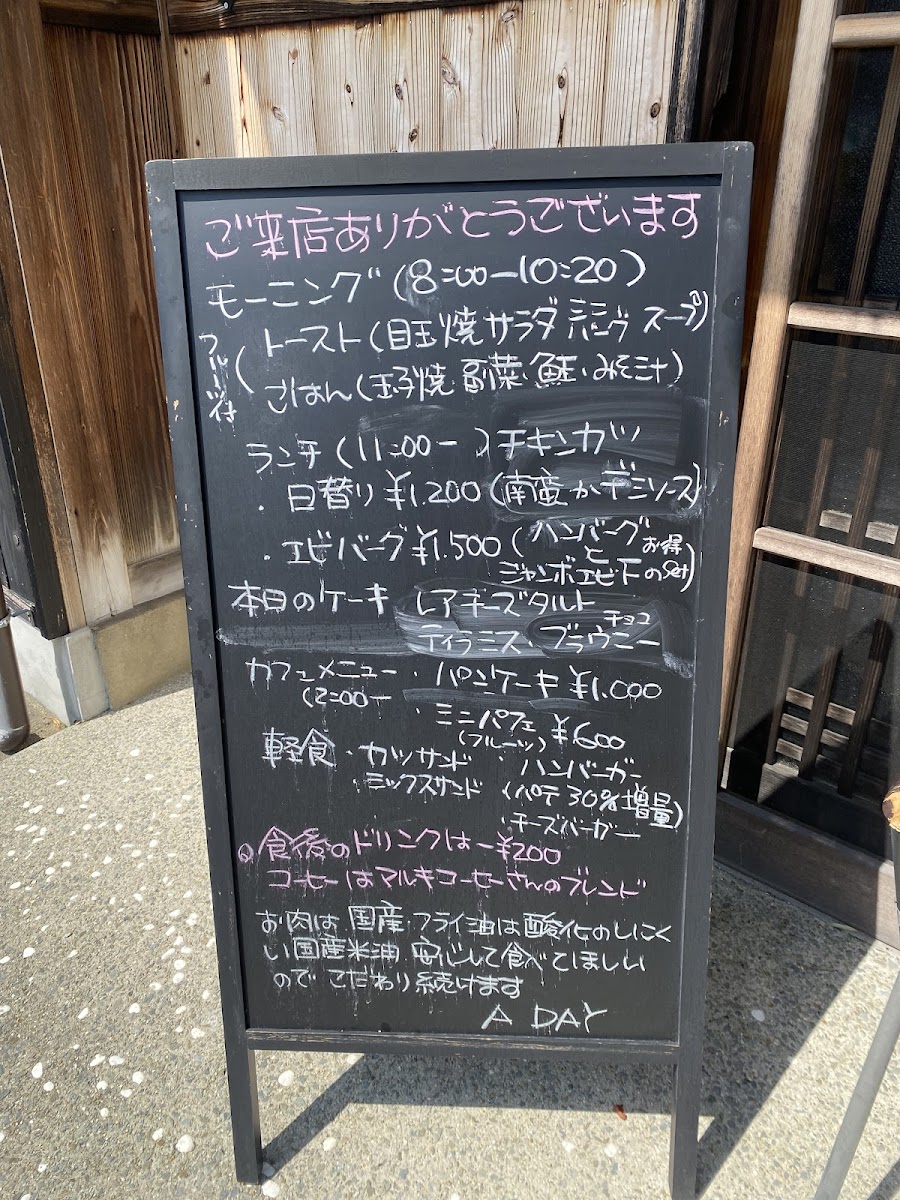 ご来店ありがとうございます
モーニング (8:00ー10:20)
フルーツ付
トースト(目玉焼 サラダ ミニハンバーグ スープ)
ごはん(玉子焼 副菜・鮭・みそ汁)
ランチ (11:00ー) チキンカツ
・日替り ¥1.200 (南蛮 か デミソース)
・エビバーグ ¥1.500 (ハンバーグ
と お得
ジャンボエビFのset)
本日のケーキ レアチーズタルト
チョコ
ティラミス・ブラウニー
カフェメニュー ・パンケーキ ¥1.000
12:00ー ・ミニパフェ ¥600
(フルーツ)
軽食 ・カツサンド ・ハンバーガー
・ミックスサンド (パテ30%増量)
・チーズバーガー
食後のドリンクはー¥200
コーヒーはマルキコーヒーさんのブレンド
お肉は国産 フライ油は酸化のしにく
い国産米油 安心して食べてほしい
ので こだわり続けます
A DAY